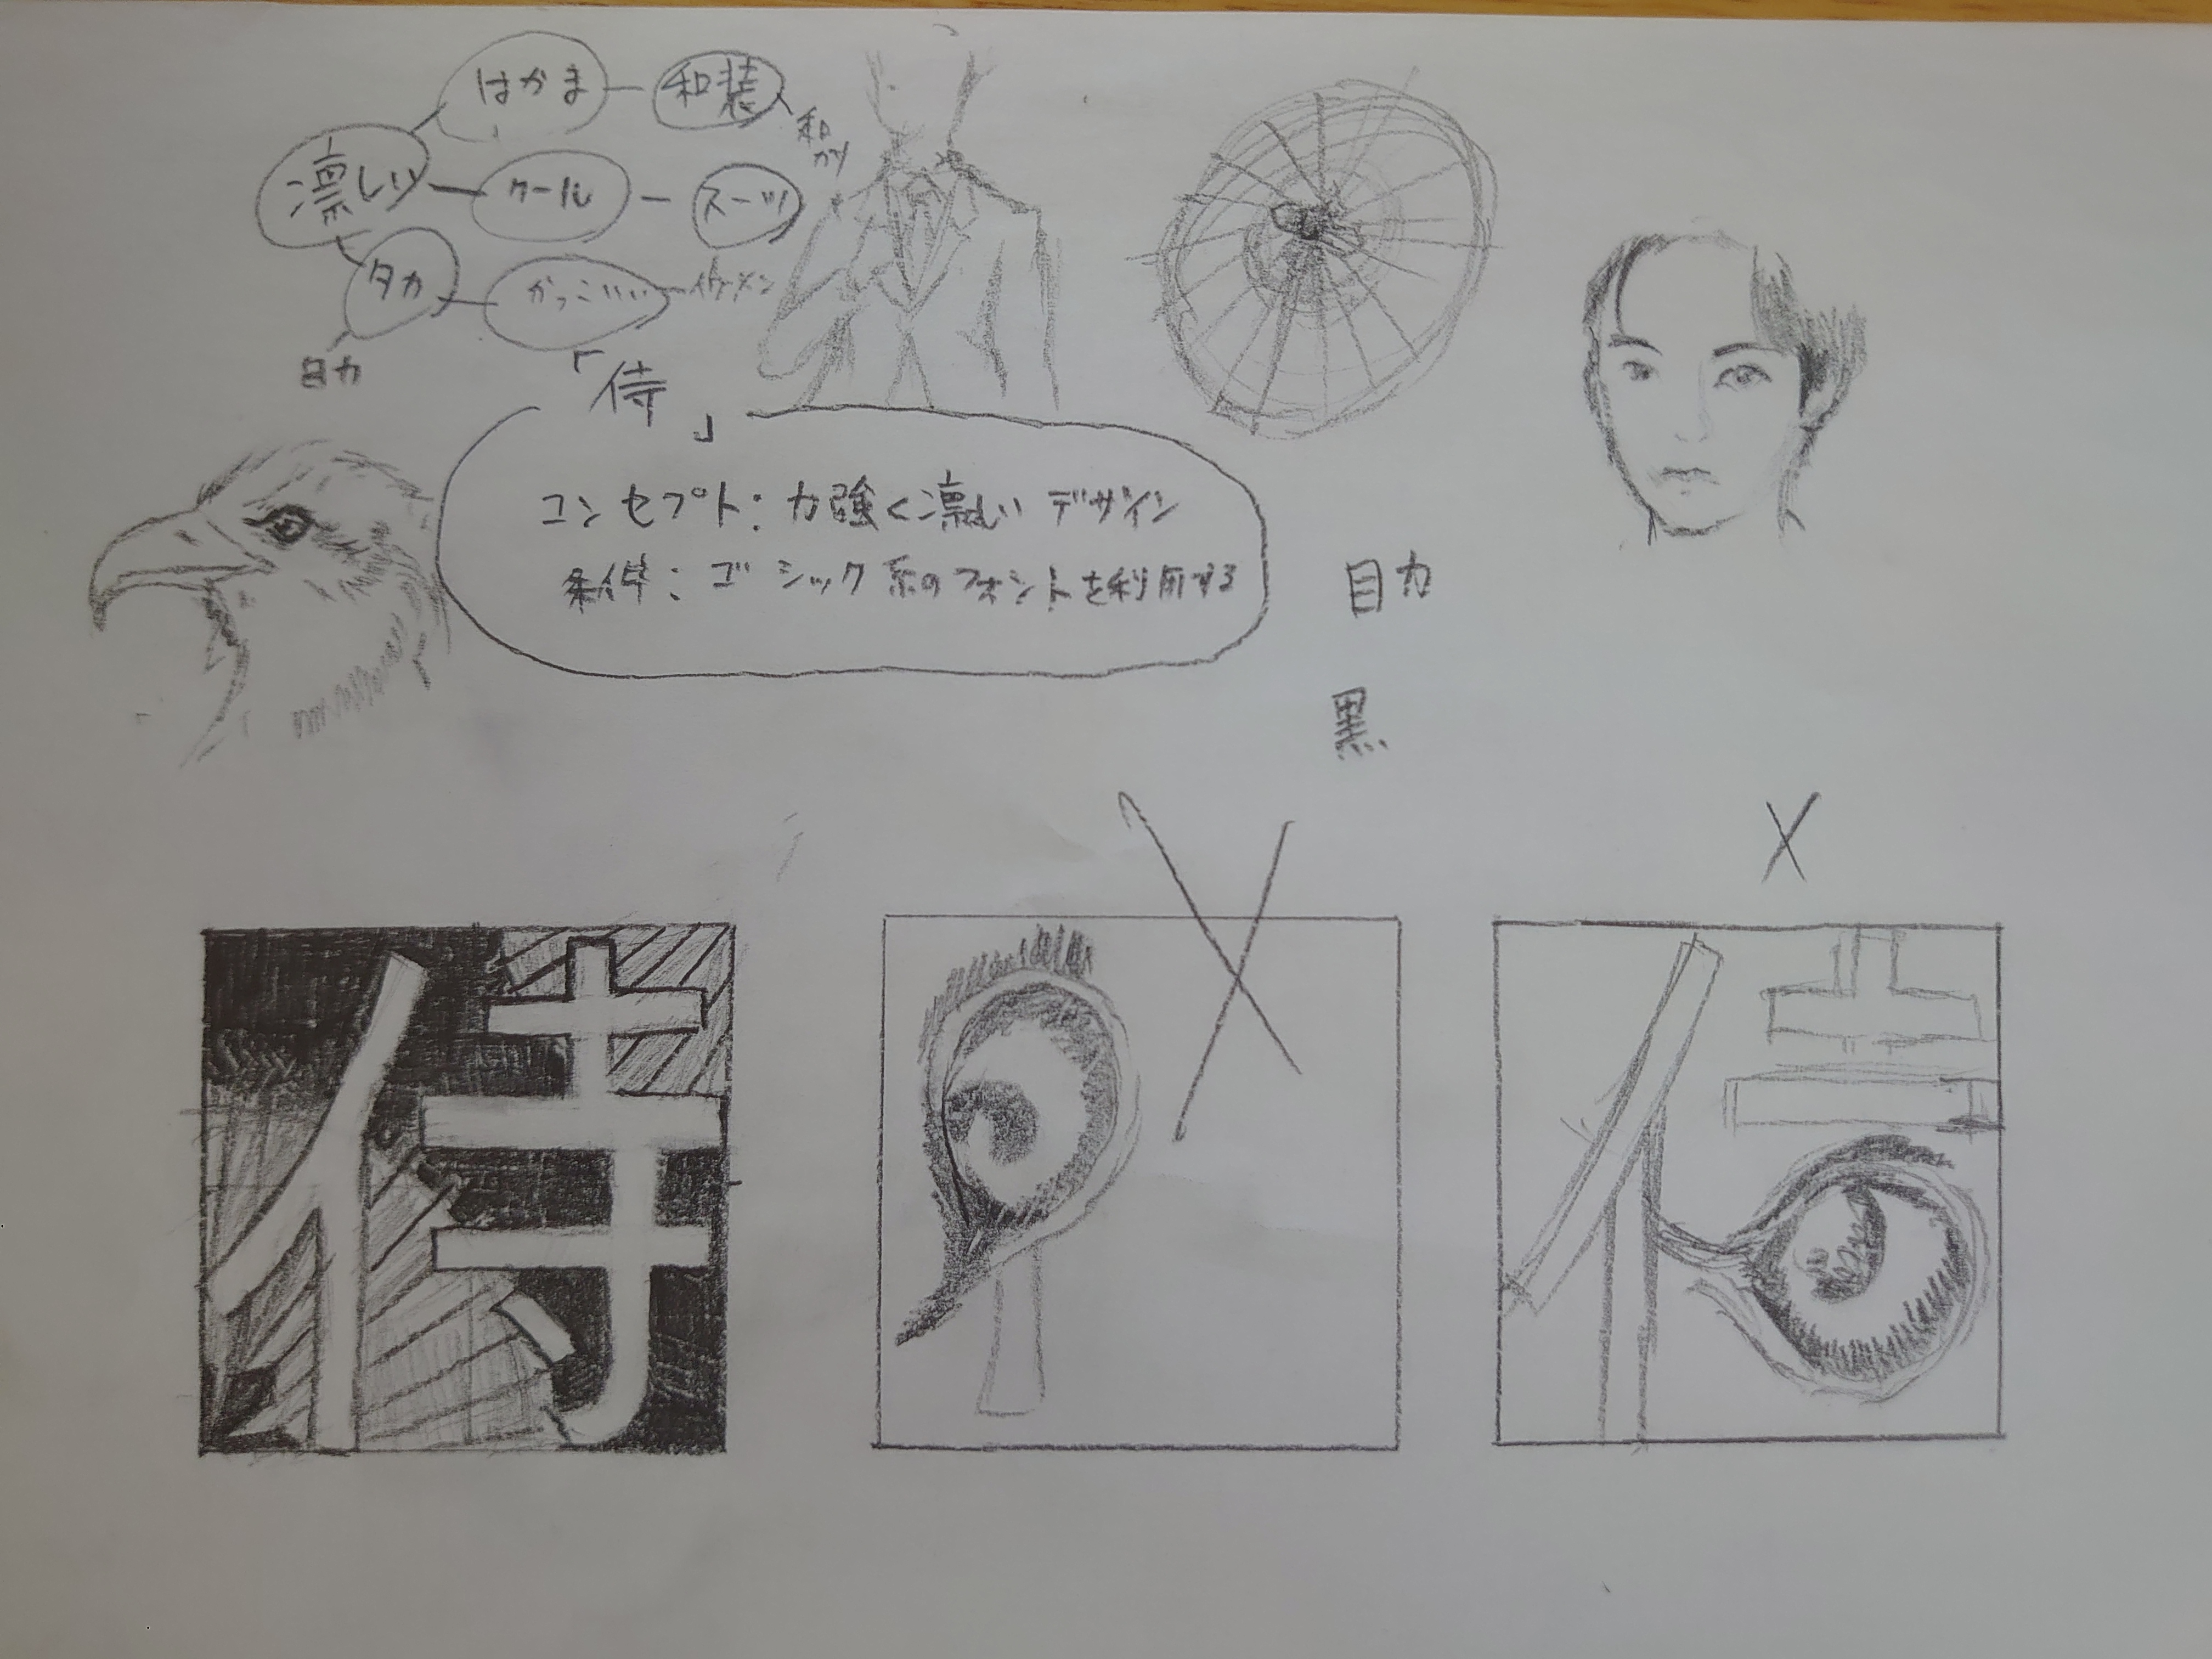 はかま
和装
和
カツ
凛しい
クール
スーツ
タカ
かっこいい
イケメン
目力
「侍」
コンセプト：力強く凛しいデザイン
条件：ゴシック系のフォントを利用する
目力
黒
侍